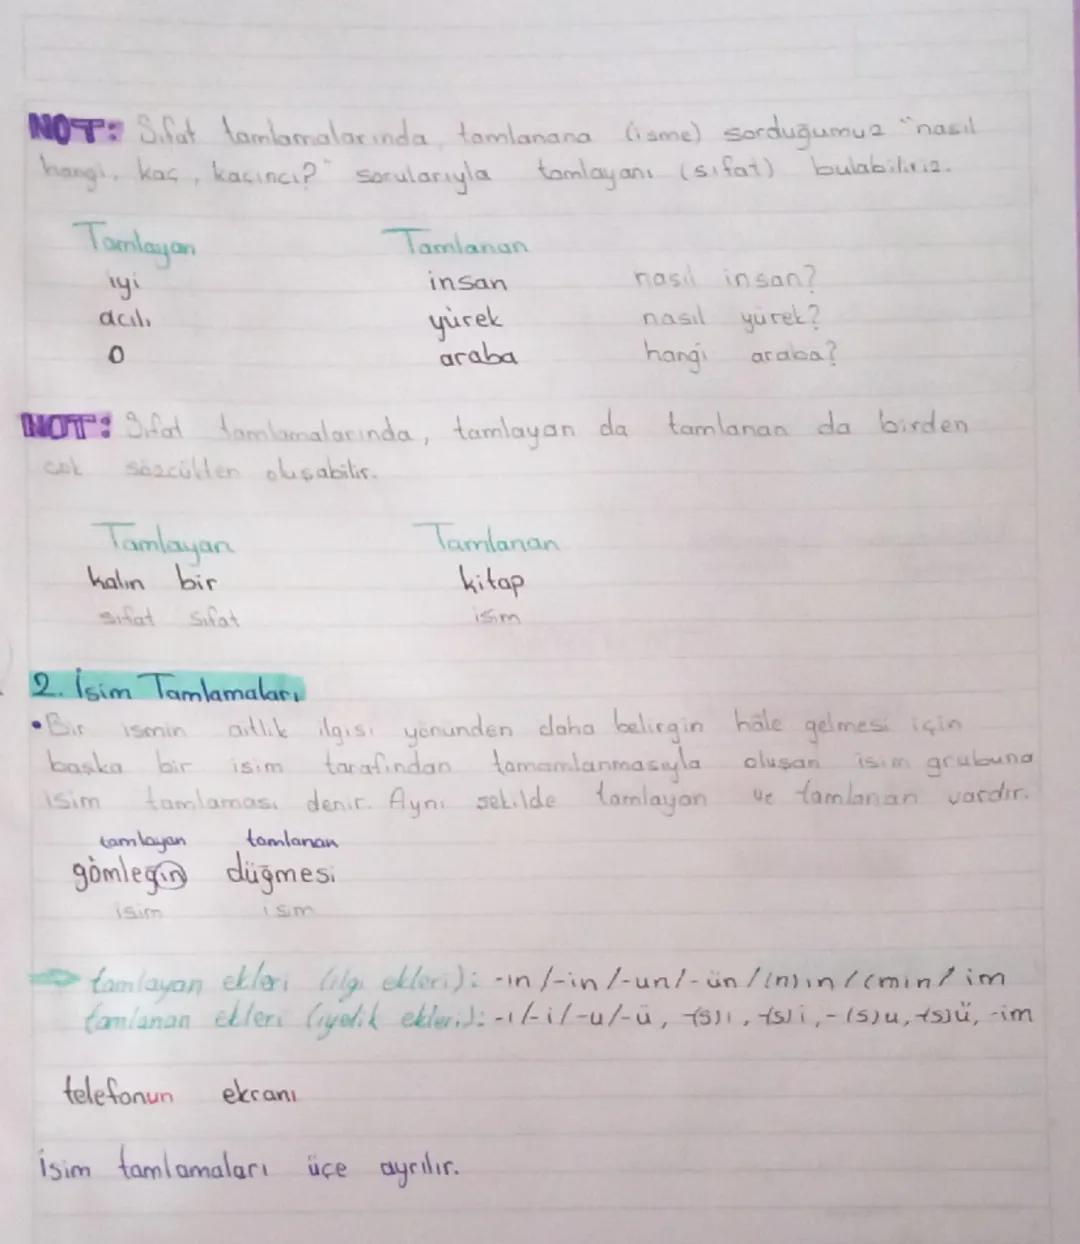 NOT: Sıfat tamlamalarında, tamlanana (isme) sorduğumuz "nasıl
hangi, kaç, kaçıncı?" sorularıyla tamlayanı (sıfat) bulabiliriz.
Tamlayan Tamlanan
iyi insan nasıl insan?
acılı yürek nasıl yürek?
o araba hangi araba?
NOT: Sıfat tamlamalarında, tamlayan da tamlanan da birden
çok sözcükten oluşabilir.
Tamlayan Tamlanan
kalın bir kitap
sıfat sıfat isim
2. İsim Tamlamaları
• Bir ismin aitlik ilgisi yönünden daha belirgin hâle gelmesi için
başka bir isim tarafından tamamlanmasıyla oluşan isim grubuna
isim tamlaması denir. Aynı şekilde tamlayan ve tamlanan vardır.
tamlayan tamlanan
gömleğin düğmesi
isim isim
tamlayan ekleri (ilgi ekleri): -ın/-in/-un/-ün/(n)ın/(nin/im
tamlanan ekleri (iyelik ekleri): -ı/-i/-u/-ü, -(s)ı, -(s)i, -(s)u, -(s)ü, -im
telefonun ekranı
isim tamlamaları üçe ayrılır.